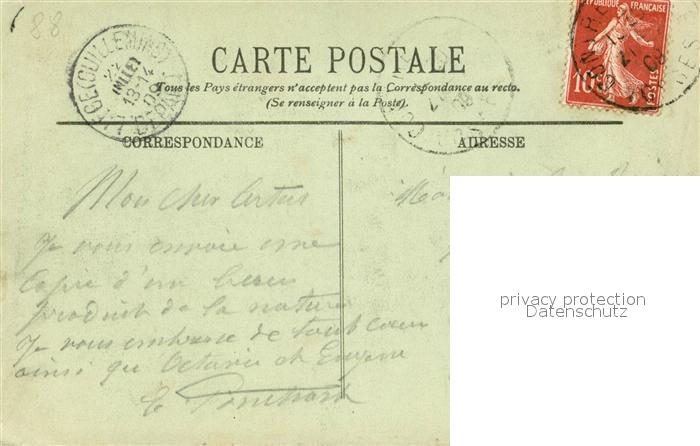 88
CARTE POSTALE
Tous les Pays étrangers n'acceptent pas la Correspondance au recto.
(Se renseigner à la Poste).
CORRESPONDANCE
ADRESSE
RÉPUBLIQUE FRANÇAISE
10
POSTES
LIEGE (GUILLEMINS)
22
JUILLET
13-14
DEPART
Mon cher
Je vous envoie une
copie d'un beau
produit de la nature
Je vous embrasse de tout coeur
ainsi qu'Octavie et Eugène
privacy protection
Datenschutz